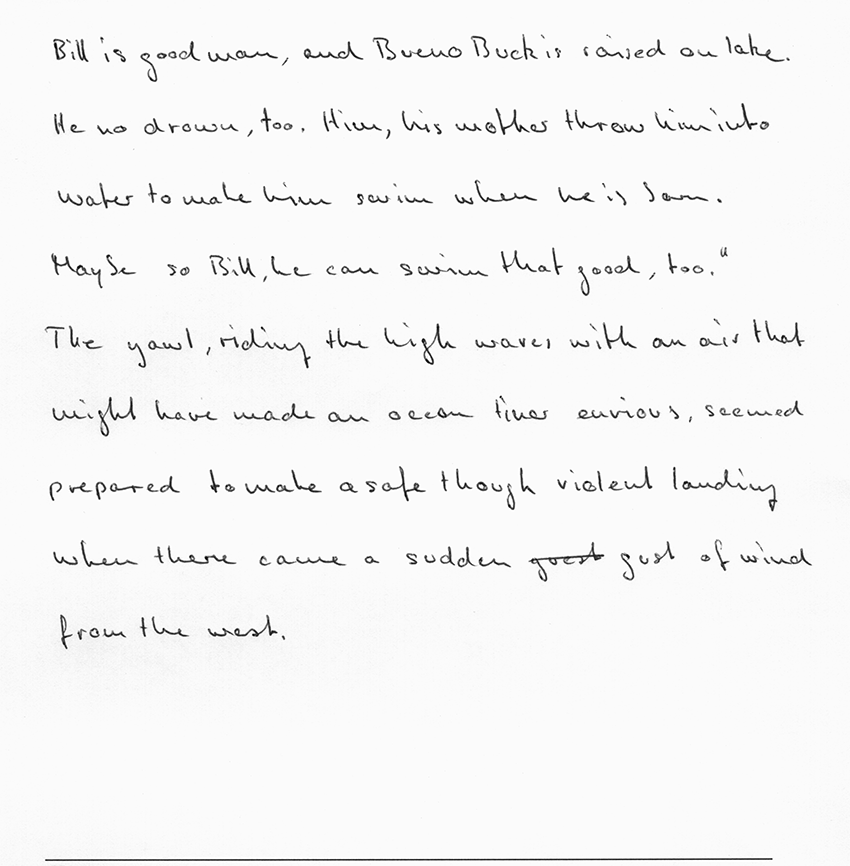 Bill is good man, and Bueno Buck is raised on lake.
He no drown, too. Him, his mother throw him into
water to make him swim when he is born.
Maybe so Bill, he can swim that good, too."
The yawl, riding the high waves with an air that
might have made an ocean liner envious, seemed
prepared to make a safe though violent landing
when there came a sudden guest gust of wind
from the west.